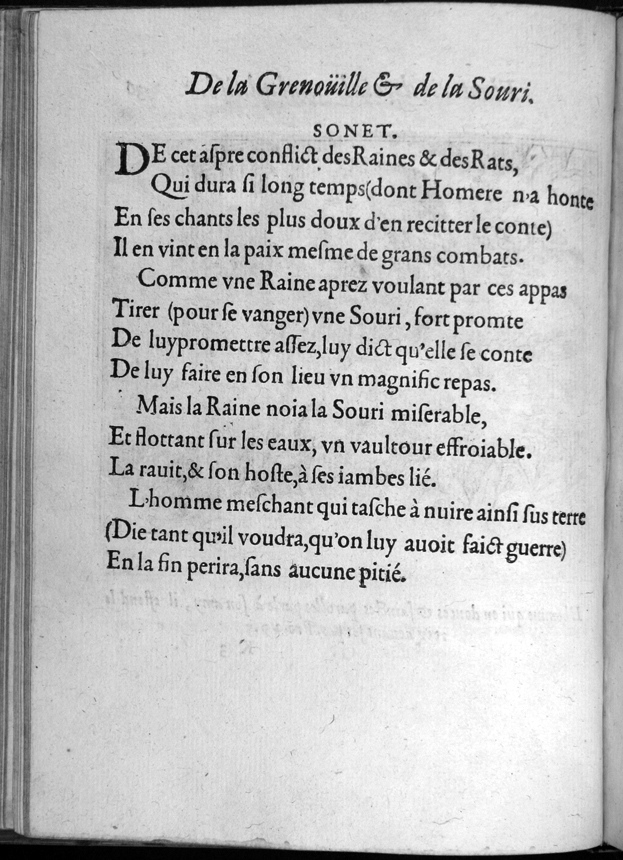 De la Grenoüille & de la Souri.
SONET.
DE cet aſpre conflict desRaines & desRats,
Qui dura ſi long temps(dont Homere n'a honte
En ſes chants les plus doux d'en recitter le conte)
Il en vint en la paix meſme de grans combats.
Comme vne Raine aprez voulant par ces appas
Tirer (pour ſe vanger) vne Souri, fort promte
De luypromettre aſſez,luy dict qu'elle ſe conte
De luy faire en ſon lieu vn magnific repas.
Mais la Raine noia la Souri miſerable,
Et flottant ſur les eaux, vn vaultour effroiable.
La rauit,& ſon hoſte,à ſes iambes lié.
L'homme meſchant qui taſche à nuire ainſi ſus terre
(Die tant qu'il voudra,qu'on luy auoit faict guerre)
En la fin perira,ſans aucune pitié.